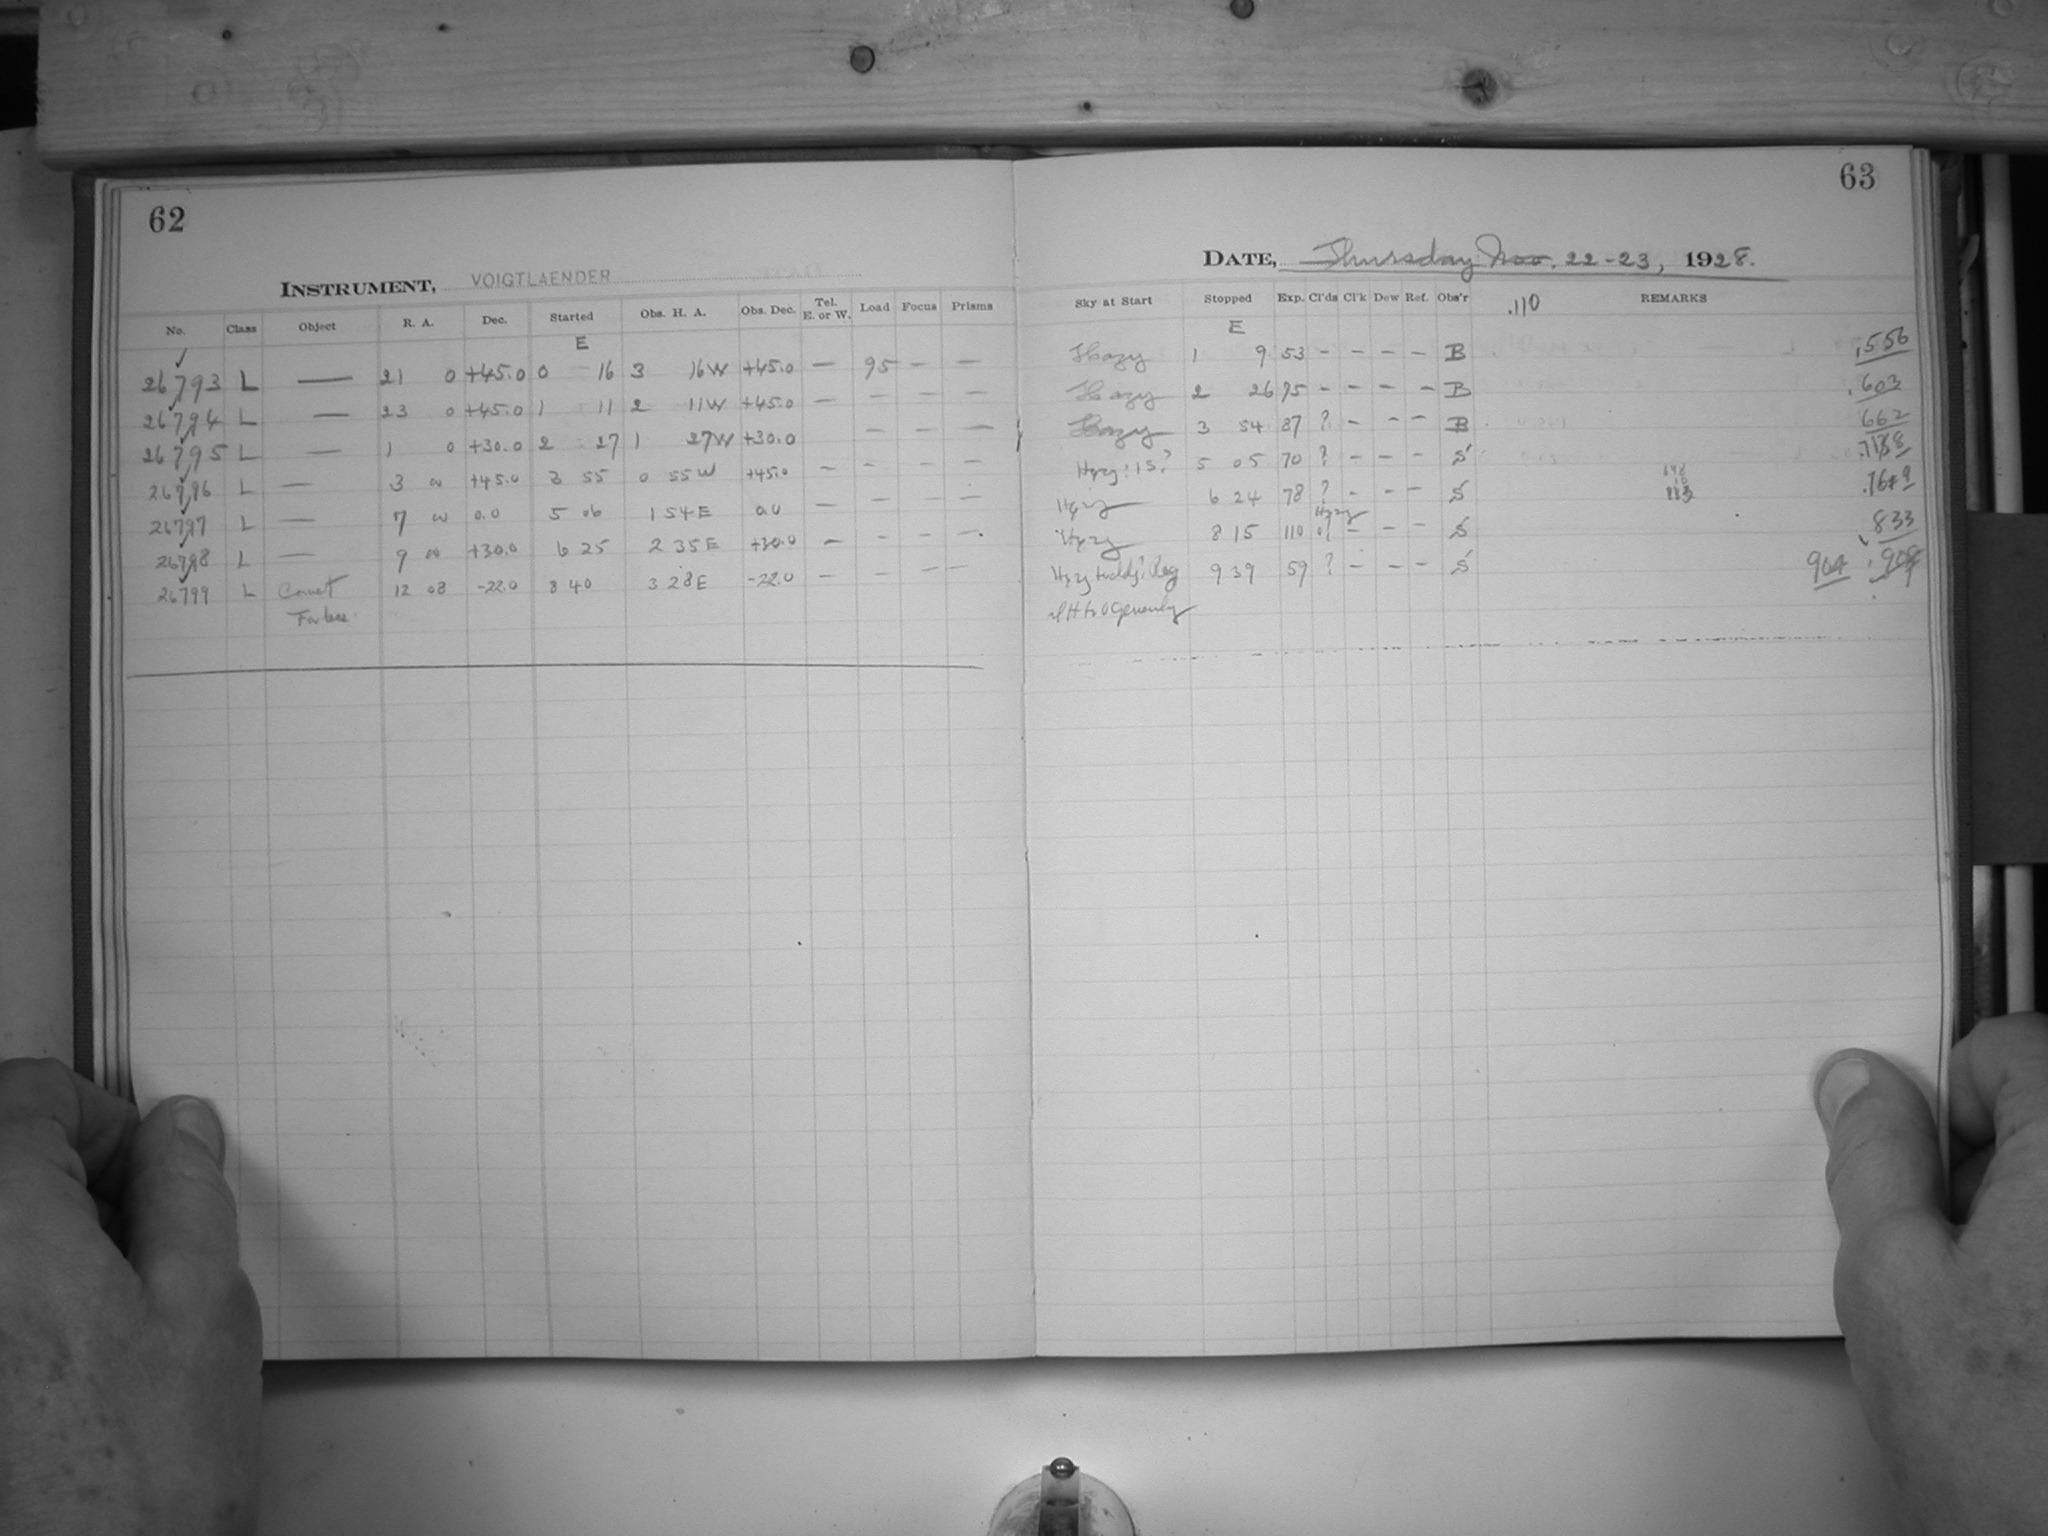 62
INSTRUMENT, VOIGTLAENDER
No. Class Object R. A. Dec. Started Obs. H. A. Obs. Dec. Tel. E. or W. Load Focus Prisms
E
26793 L — 21 0 +45.0 0 16 3 16W +45.0 — 95 — —
26794 L — 23 0 +45.0 1 11 2 11W +45.0 — — — —
26795 L — 1 0 +30.0 2 27 1 27W +30.0 — — —
26796 L — 3 +45.0 3 55 0 55W +45.0 — — — —
26797 L — 7 0.0 5 06 1 54E 0.0 — — — —
26798 L — 9 +30.0 6 25 2 35E +30.0 — — — —
26799 L Comet 12 08 -22.0 8 40 3 28E -22.0 — — — —
Forbes.
63
DATE, Thursday Nov. 22-23, 1928.
Sky at Start Stopped Exp. Cl'ds Cl'k Dew Ref. Obs'r .110 REMARKS
E
Hazy 1 9 53 - - - - B .556
Hazy 2 26 75 - - - - B .603
Hazy 3 54 87 ? - - - B 662
Hazy: 15? 5 05 70 ? - - - S
Hazy 6 24 78 ? - - - S
Hazy
Hazy 8 15 110 - - - S .833
Hazy 9 39 59 ? - - - S 904